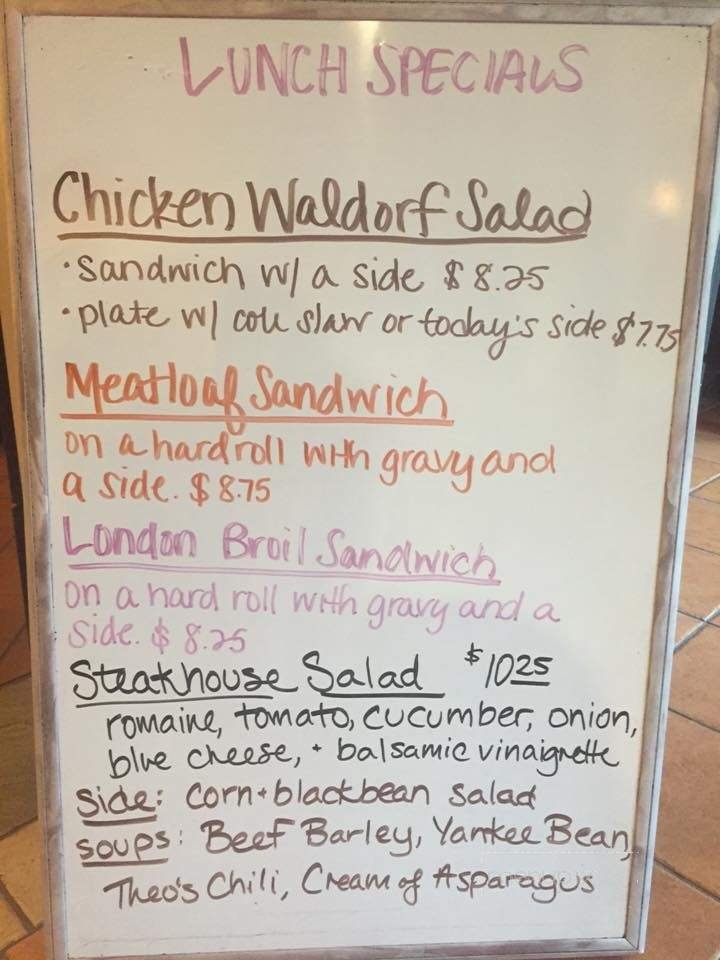 LUNCH SPECIALS
Chicken Waldorf Salad
• Sandwich w/ a side $8.25
• plate w/ cole slaw or today's side $7.75
Meatloaf Sandwich
on a hard roll with gravy and
a side. $8.75
London Broil Sandwich
on a hard roll with gravy and a
side. $8.25
Steakhouse Salad $10.25
romaine, tomato, cucumber, onion,
blue cheese, + balsamic vinaigrette
Side: Corn + blackbean salad
Soups: Beef Barley, Yankee Bean,
Theo's Chili, Cream of Asparagus